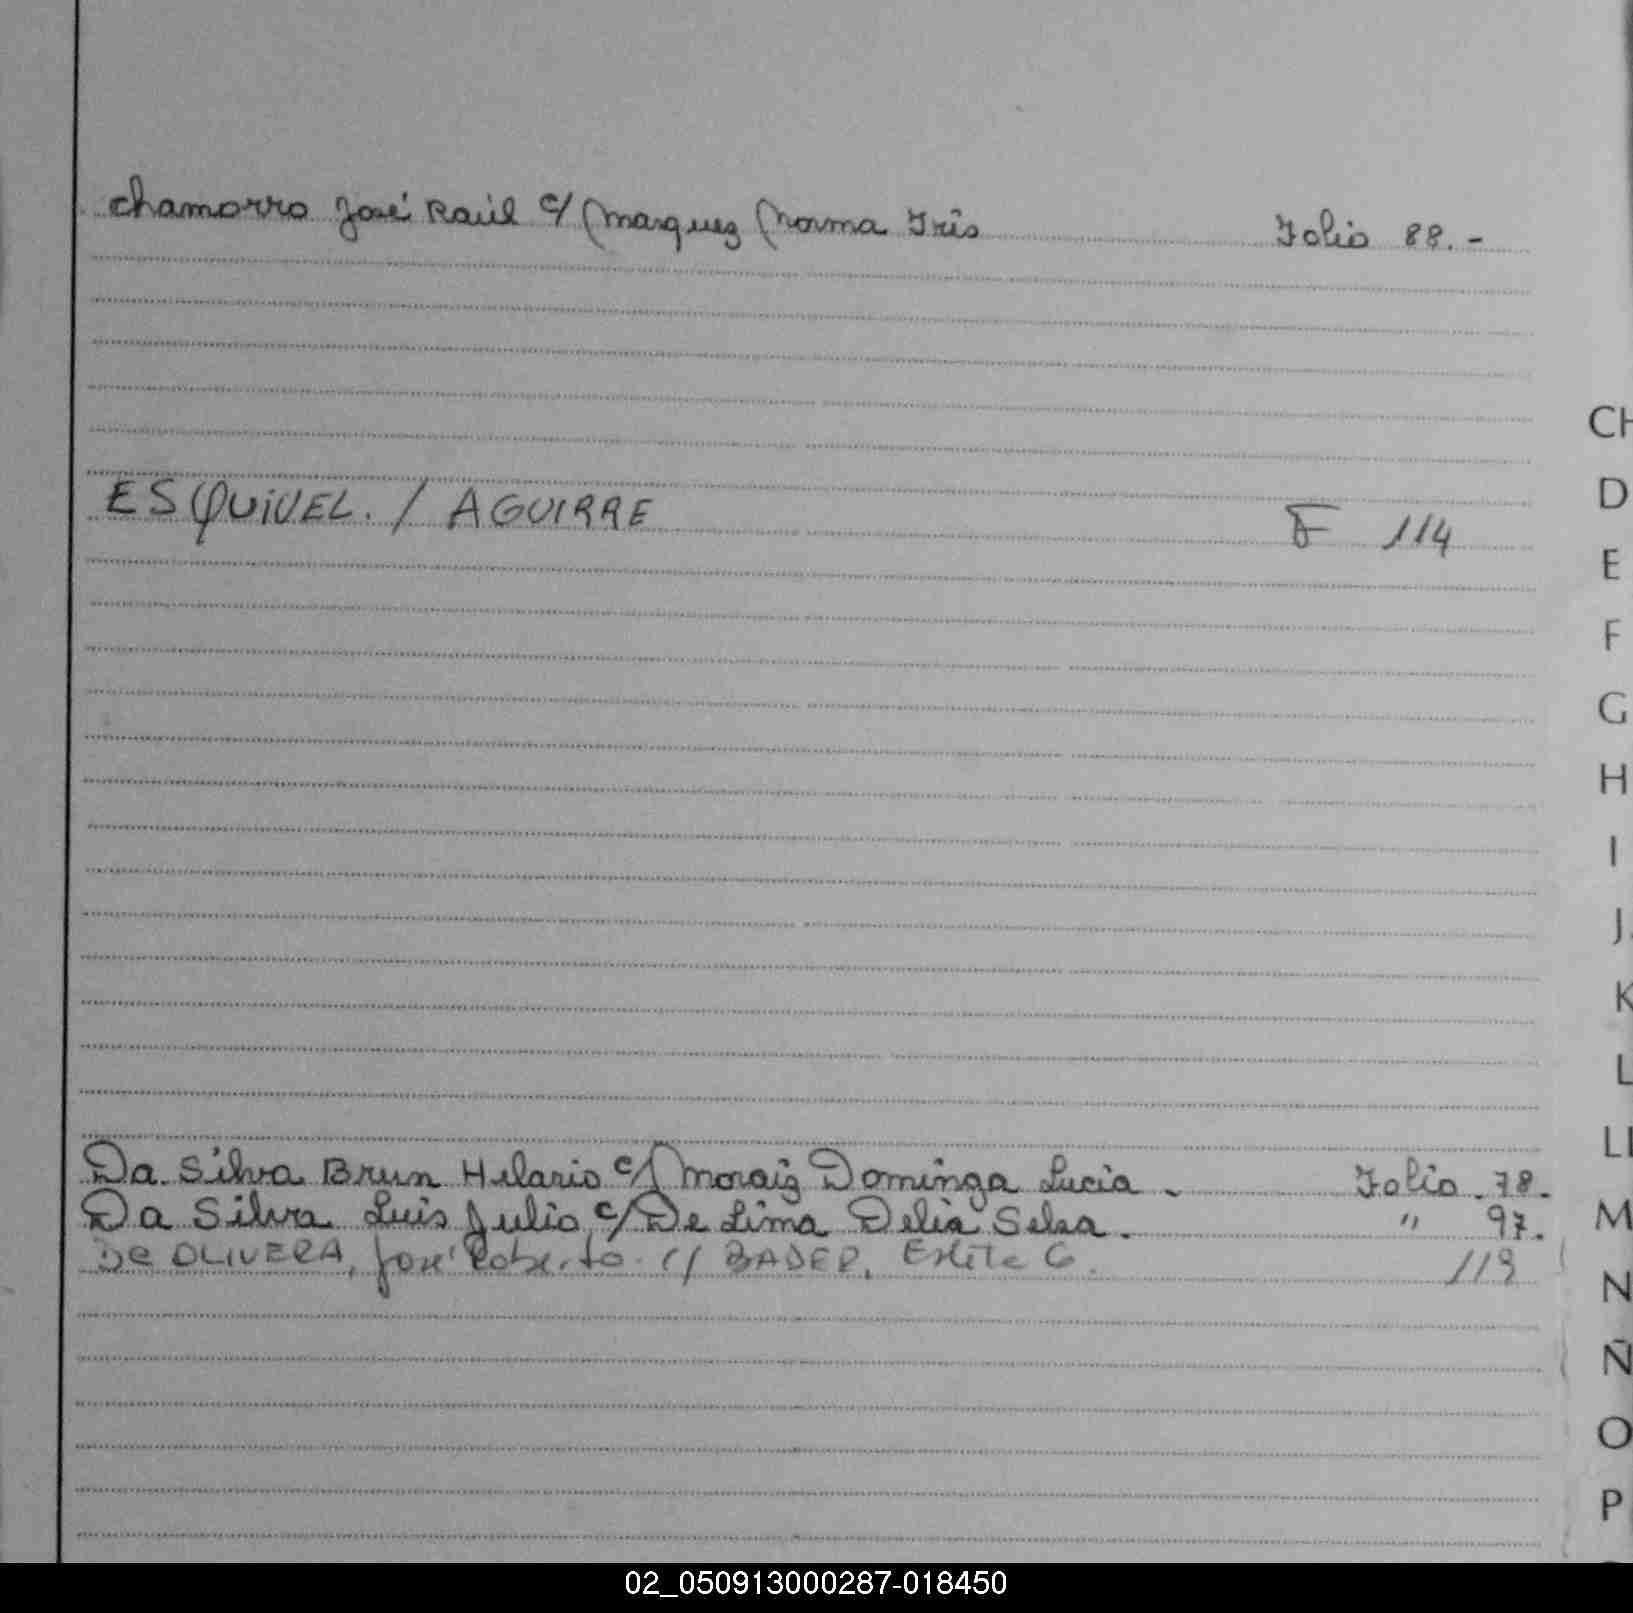 Chamorro José Raúl c/ Marquez Norma Iris Folio 88.-
CH
D
ESQUIVEL. / AGUIRRE F 114
E
F
G
H
I
J
K
L
LL
Da Silva Brun Hilario c/ Morais Dominga Lucia. Folio 78.
Da Silva Luis Julio c/ De Lima Delia Selsa. " 97.
M
De OLIVERA, José Roberto c/ BADER, G. 119
N
Ñ
O
P
02_050913000287-018450